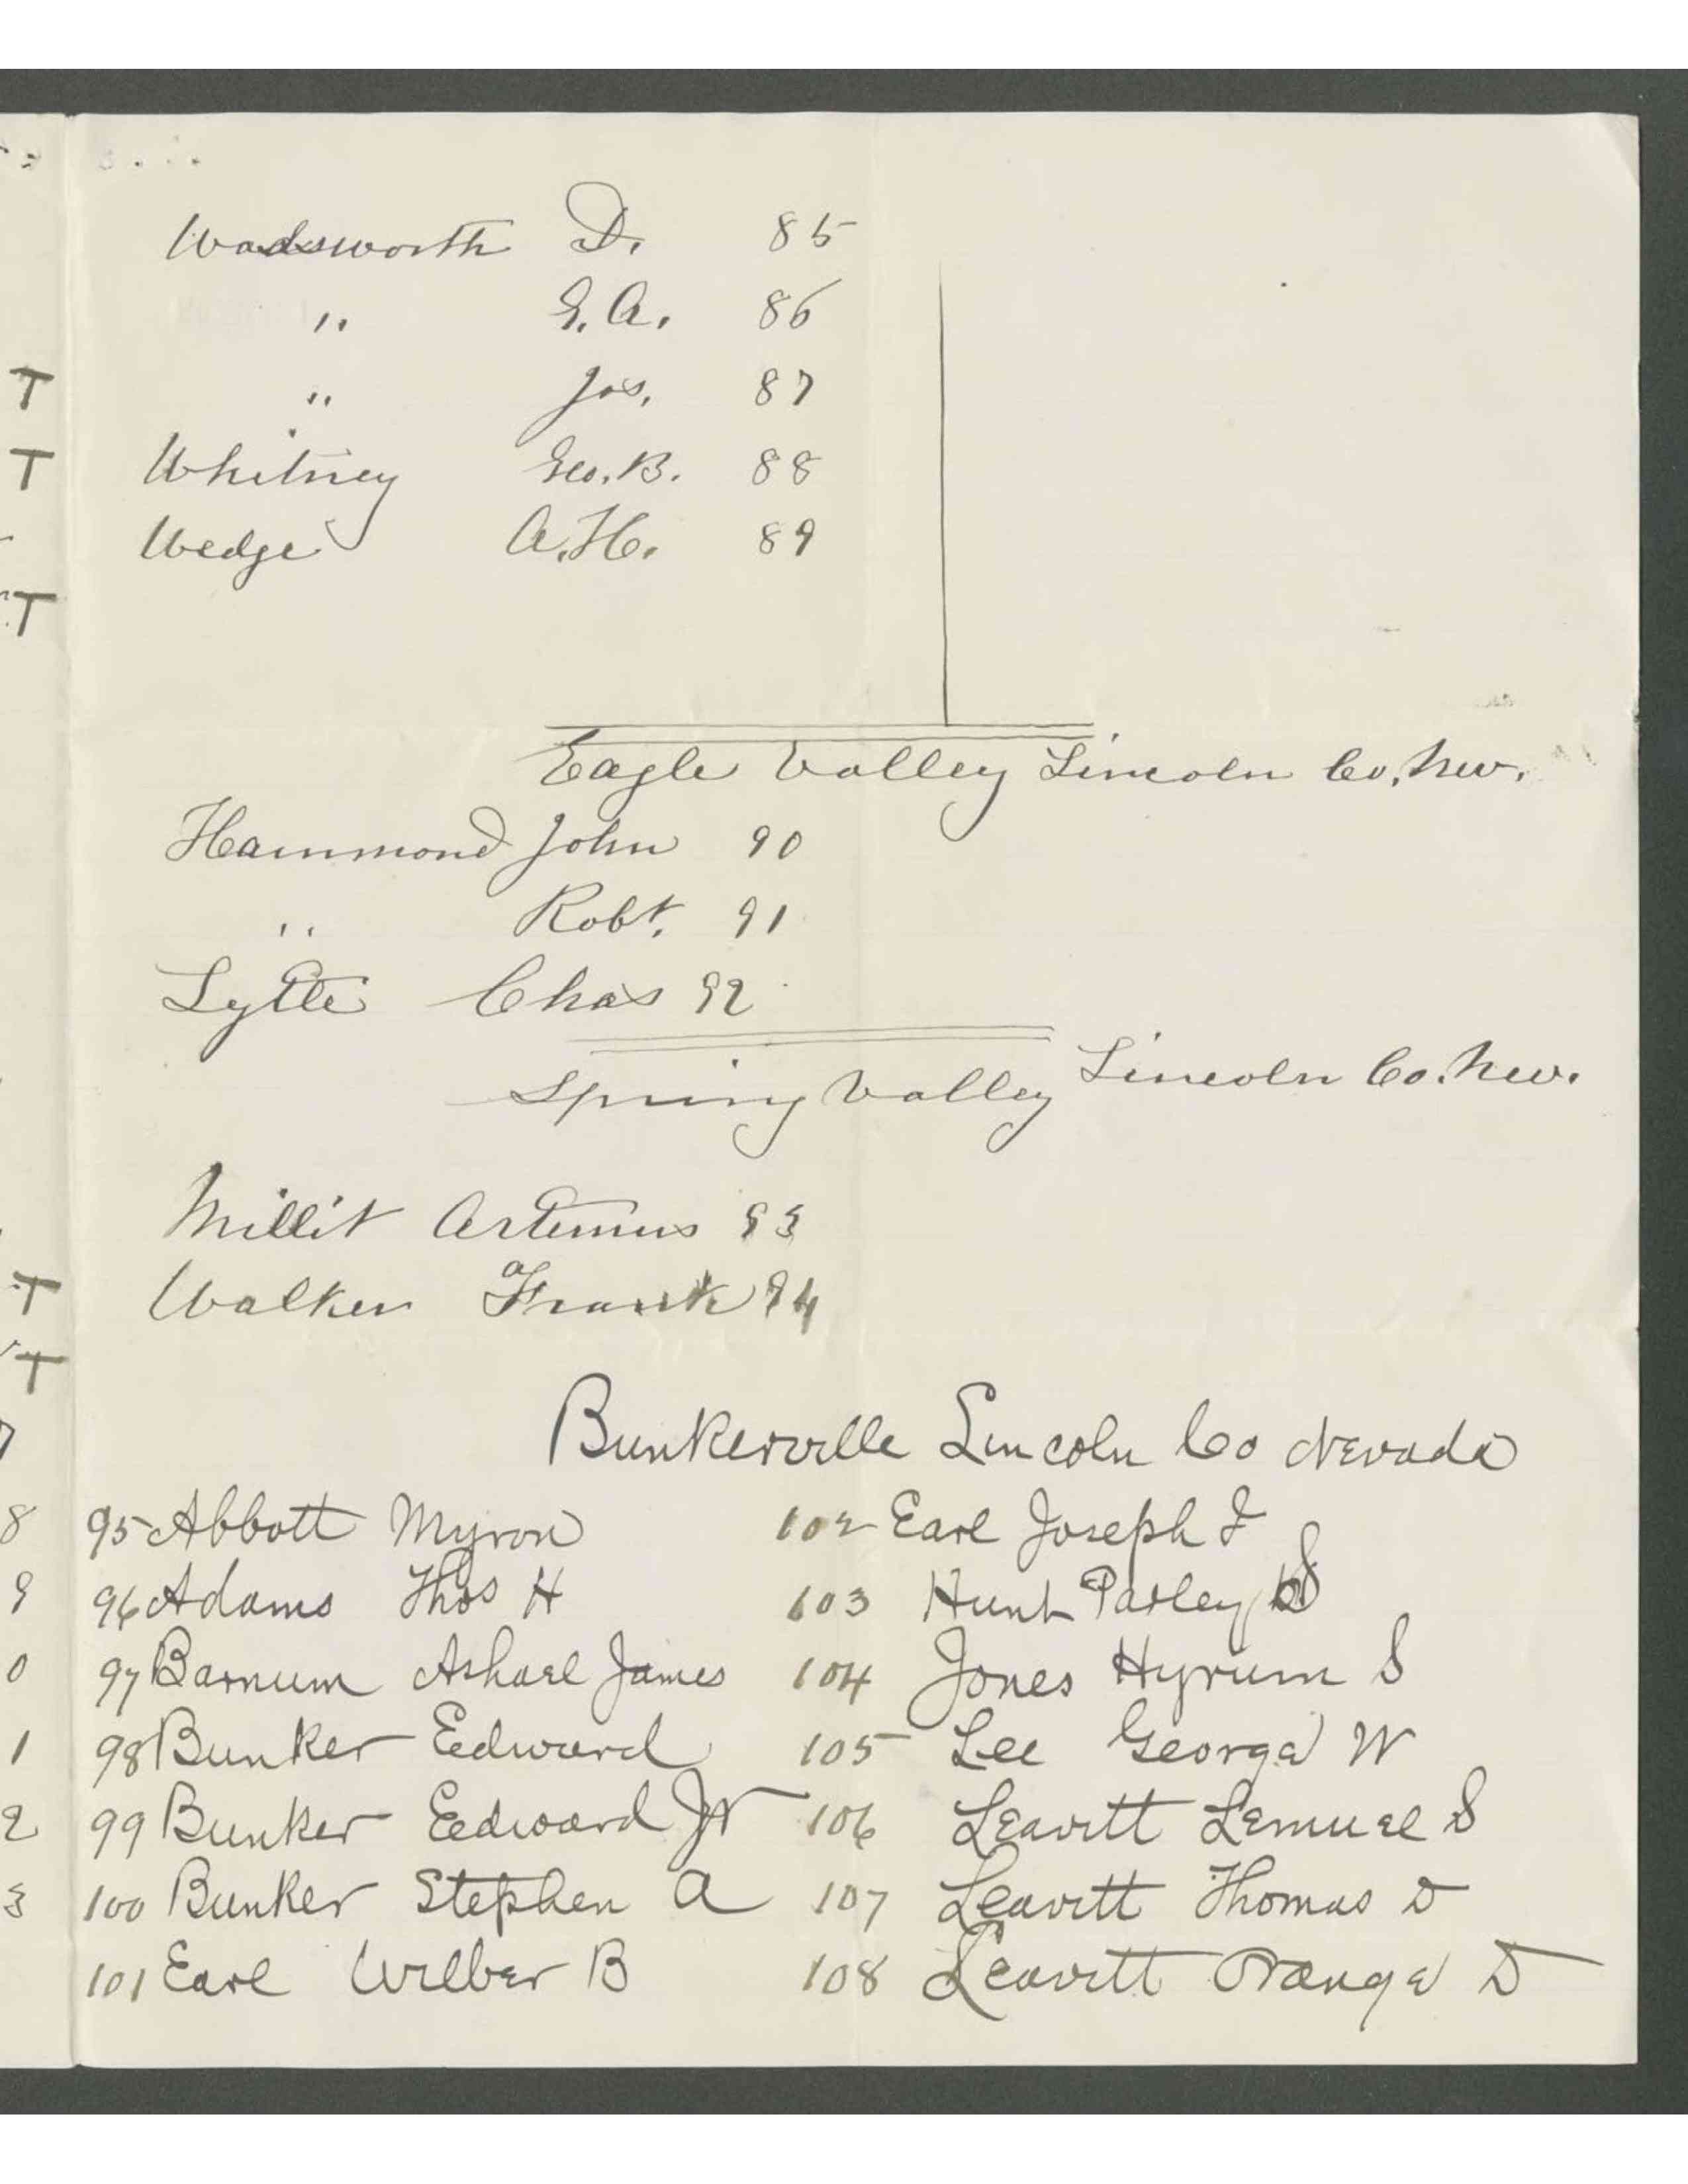 Wadsworth D. 85
" G. A. 86
" Jos. 87
Whitney Geo. B. 88
Wedge A. H. 89
Eagle Valley Lincoln Co. Nev.
Hammond John 90
" Robt. 91
Lytle Chas 92
Spring Valley Lincoln Co. Nev.
Millit Artemus 93
Walker Frank 94
Bunkerville Lincoln Co Nevada
95 Abbott Myron
96 Adams Thos H
97 Barnum Ashael James
98 Bunker Edward
99 Bunker Edward Jr
100 Bunker Stephen A
101 Earl Wilber B
102 Earl Joseph I
103 Hunt Parley S
104 Jones Hyrum S
105 Lee George W
106 Leavitt Lemuel S
107 Leavitt Thomas D
108 Leavitt Orange D
T
T
T
T
T
8
9
0
1
2
3